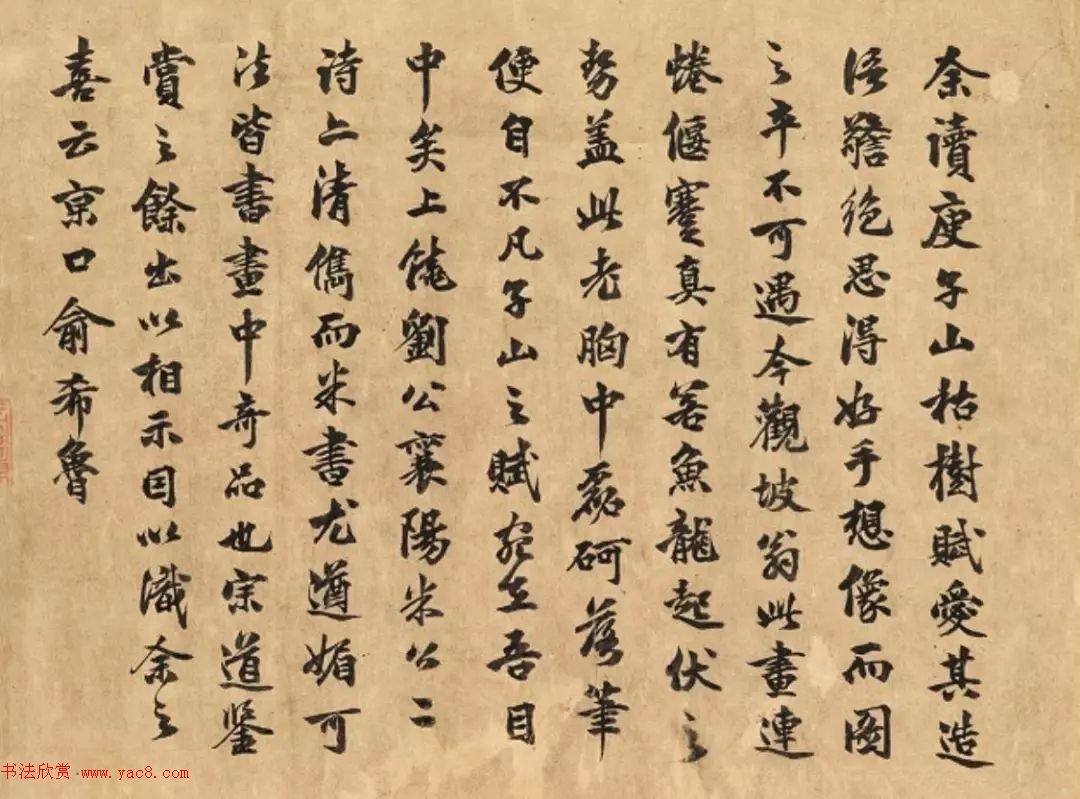 余讀庾子山枯樹賦愛其造
語警絶思得好手想像而圖
之卒不可遇今觀坡翁此畫連
蜷偃蹇真有若魚龍起伏之
勢盖此老胸中磊砢落筆
便自不凡子山之賦宛在吾目
中矣上饒劉公襄陽米公二
詩上清儁而米書尤遒媚可
法皆書畫中奇品也宗道鑒
賞之餘出以相示因以識余之
喜云京口俞希魯
书法欣赏 www.yac8.com